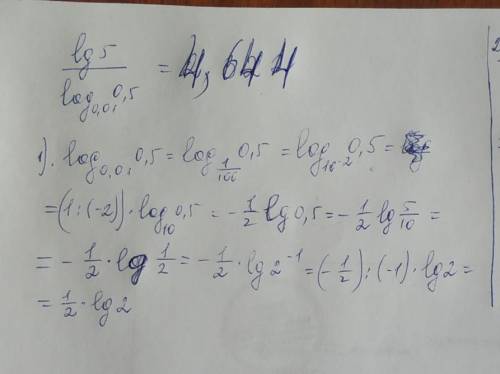 lg 5 / log₀,₀₁ 0,5 = 4,644
1). log₀,₀₁ 0,5 = log_(1/100) 0,5 = log_(10⁻²) 0,5 =
= (1 : (-2)) · log₁₀ 0,5 = - 1/2 lg 0,5 = - 1/2 lg 5/10 =
= - 1/2 · lg 1/2 = - 1/2 · lg 2⁻¹ = (- 1/2) : (-1) · lg 2 =
= 1/2 · lg 2